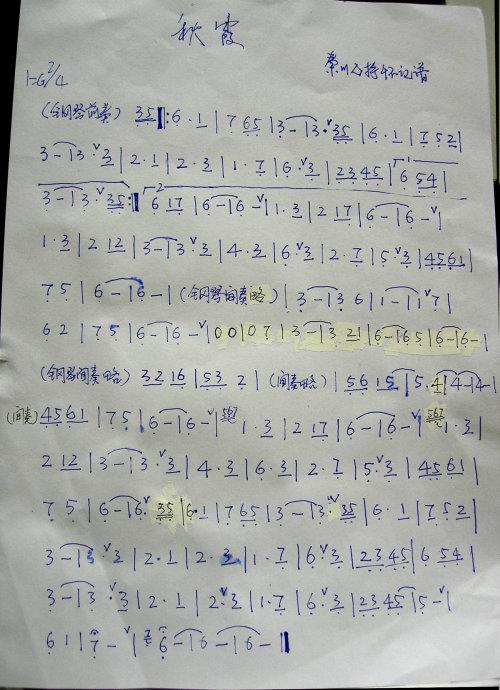 秋霞
1=G 2/4
记谱
(钢琴前奏) 35 ‖: 6 · 1 | 7 65 | 3 – | 3 · ∨ 35 | 6 · 1 | 7 52 |
3 – | 3 · ∨ 3 | 2 · 1 | 2 · 3 | 1 · 7 | 6 · ∨ 3 | 23 45 | 6 54 |
3 – | 3 · ∨ 35 :‖ 6 17 | 6 – | 6 – ∨ | 1 · 3 | 2 17 | 6 – | 6 – ∨ |
1 · 3 | 2 12 | 3 – | 3 ∨ 3 | 4 · 3 | 6 · ∨ 3 | 2 · 7 | 5 ∨ 3 | 4561 |
7 5 | 6 – | 6 – | (钢琴间奏略) | 3 – | 3 6 | 1 – | 1 ∨ 7 |
6 2 | 7 5 | 6 – | 6 – ∨ | 0 0 | 0 7 | 3 – | 3 21 | 6 – | 6 5 | 6 – | 6 – |
(钢琴间奏略) 32 16 | 53 2 | (间奏略) | 56 15 | 5 · 4 | 4 – | 4 – |
(间奏) 4561 | 7 5 | 6 – | 6 – ∨ | 1 · 3 | 2 17 | 6 – | 6 – ∨ | 567 1 · 3 |
2 12 | 3 – | 3 · ∨ 3 | 4 · 3 | 6 · 3 | 2 · 7 | 5 ∨ 3 | 4561 |
7 5 | 6 – | 6 · ∨ 35 | 6 · 1 | 7 65 | 3 – | 3 · ∨ 35 | 6 · 1 | 7 52 |
3 – | 3 · ∨ 3 | 2 · 1 | 2 · 3 | 1 · 7 | 6 ∨ 3 | 23 45 | 6 54 |
3 – | 3 · ∨ 3 | 2 · 1 | 2 ∨ 3 | 1 · 7 | 6 · ∨ 3 | 23 45 | 5 – ∨ |
6 1 | 7 – ∨ | 7 6 – | 6 – | 6 – ‖